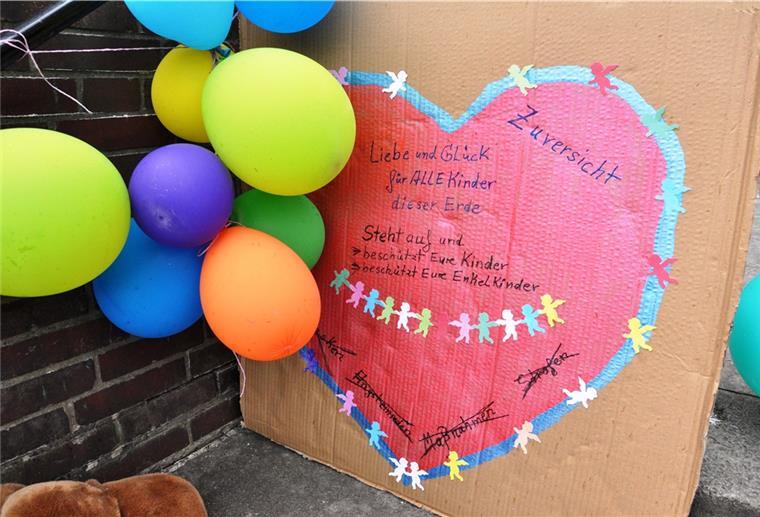 Zuversicht
Liebe und GLück
für ALLE Kinder
dieser Erde
Steht auf und
beschützt Eure Kinder
beschützt Eure Enkelkinder
Maßnahmen